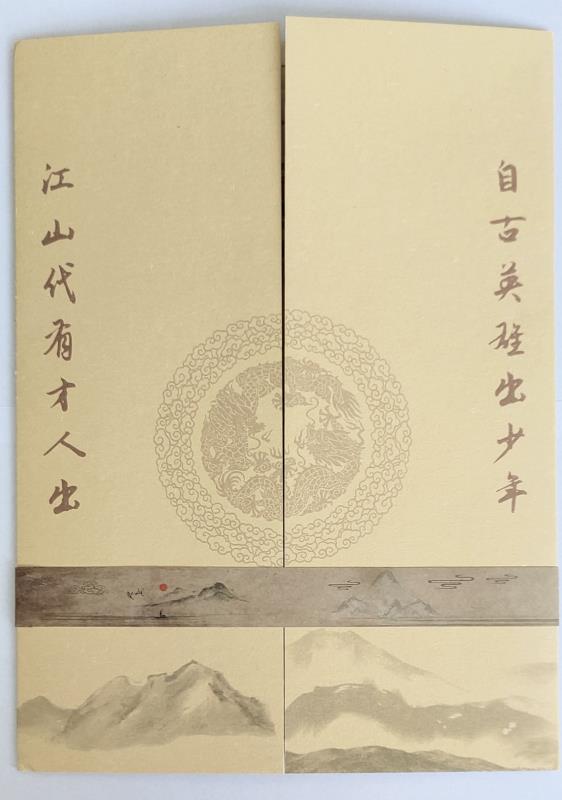 自古英雄出少年
江山代有才人出